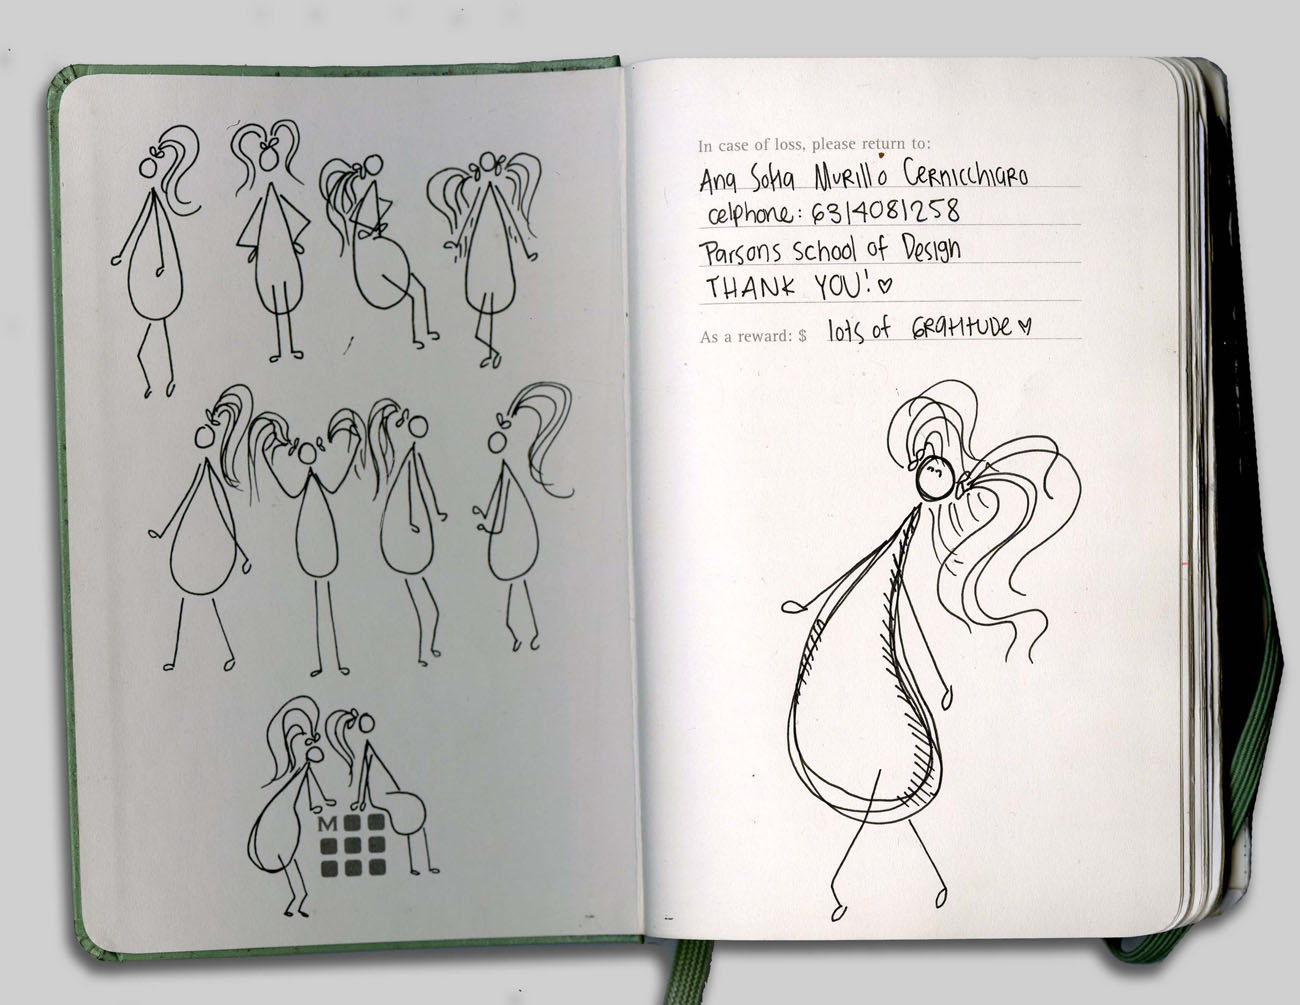 In case of loss, please return to:
Ana Sofia Murillo Cernicchiaro
celphone: 6314081258
Parsons school of Design
THANK YOU! ♡
As a reward: $ lots of GRATITUDE ♡
M